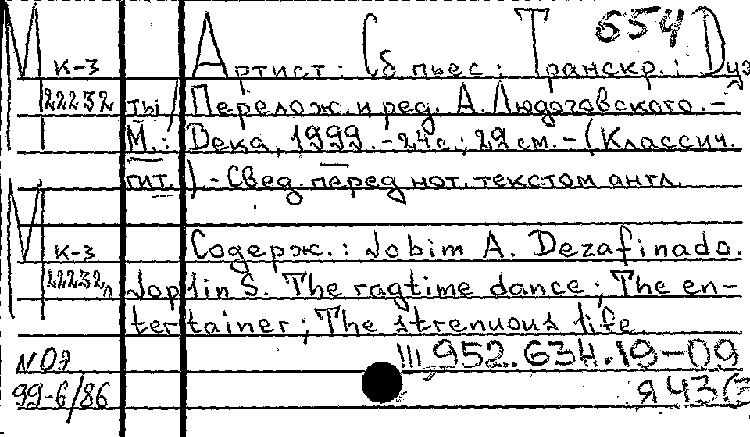 654
М к-3 Артист : Сб пьес : Транскр. : Дуэ
22232 ты / Перелож. и ред. А. Людоговского. -
М. : Дека, 1999. - 24 с. ; 29 см. - (Классич.
гит.). - Свед. перед нот. текстом англ.
М к-3 Содерж. : Jobim A. Dezafinado.
22232а Joplin S. The ragtime dance ; The en-
tertainer ; The strenuous life
N 09 952.634.19-09
99-6/86 Я 43(3